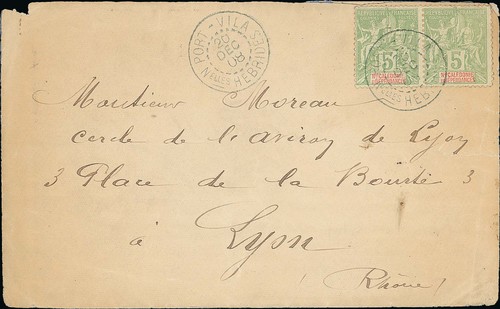 PORT-VILA
20
DEC
08
Nlles HEBRIDES
5
5
Nlle CALEDONIE
DÉPENDANCES
Nlle CALEDONIE
DÉPENDANCES
Monsieur Moreau
cercle de l'aviron de Lyon
3 Place de la Bourse 3
à Lyon
(Rhône)